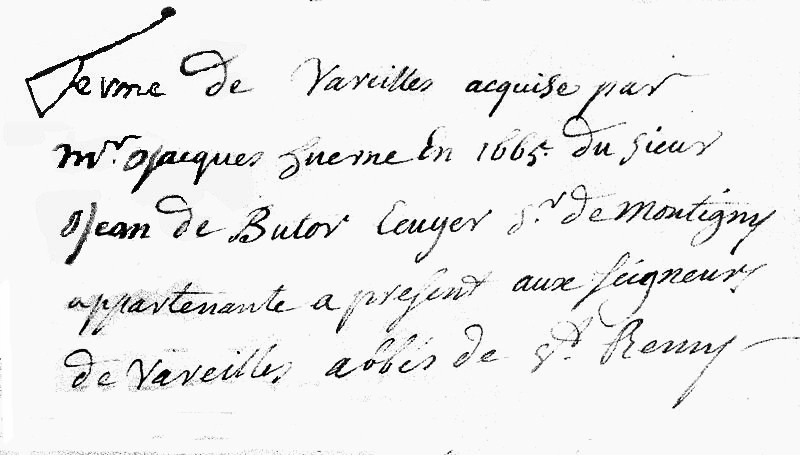 ferme de Vareilles acquise par
Mr. Jacques Guerne En 1665. du sieur
Jean de Butor Ecuyer Sr. de Montigny
appartenante a present aux seigneurs
de Vareilles abbés de St. Remy